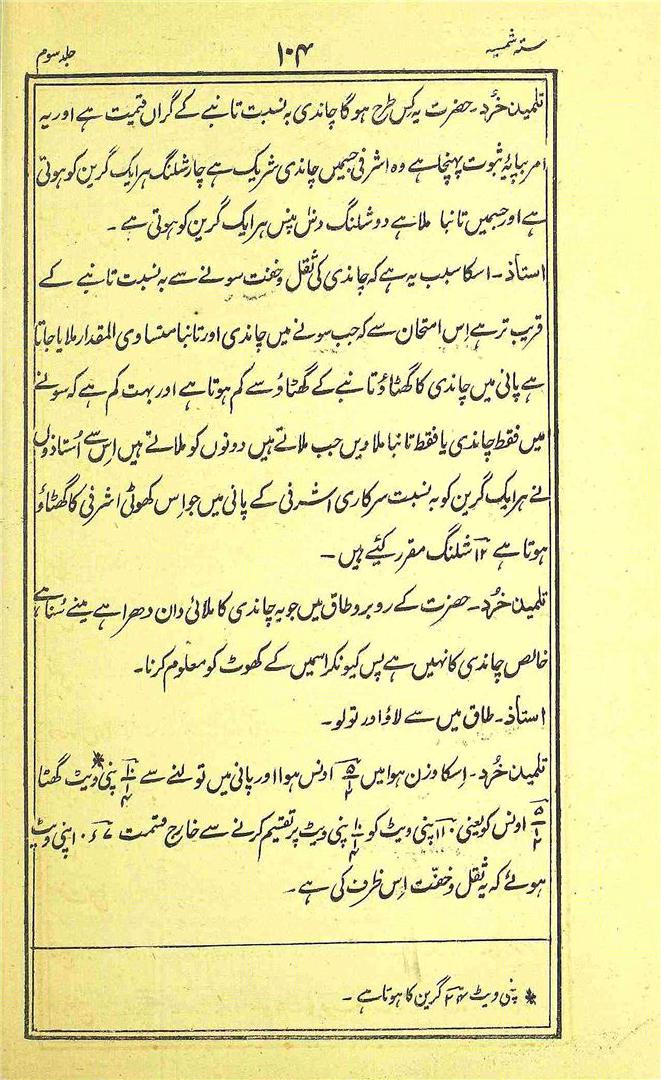 ستہ شمسیہ ۱۰۴ جلد سوم
تلمیذ خُرد ۔ حضرت یہ کس طرح ہوگا چاندی بہ نسبت تانبے کے گراں قیمت ہے اور یہ
امر بپایۂ ثبوت پہنچا ہے وہ اشرفی جسمیں چاندی شریک ہے چار شلنگ ہر ایک گرین کو ہوتی
ہے اور جسمیں تانبا ملا ہے دو شلنگ دس پینس ہر ایک گرین کو ہوتی ہے ۔
استاذ ۔ اسکا سبب یہ ہے کہ چاندی کی ثقل و خفت سونے سے بہ نسبت تانبے کے
قریب تر ہے اِس امتحان سے کہ جب سونے میں چاندی اور تانبا متساوی المقدار ملایا جاتا
ہے پانی میں چاندی کا گھٹاؤ تانبے کے گھٹاؤ سے کم ہوتا ہے اور بہت کم ہے کہ سونے
میں فقط چاندی یا فقط تانبا ملاویں جب ملاتے ہیں دونوں کو ملاتے ہیں اِس سے اُستاذوں
نے ہر ایک گرین کو بہ نسبت سرکاری اشرفی کے پانی میں جو اِس کھوٹی اشرفی کا گھٹاؤ
ہوتا ہے ۱۲ شلنگ مقرر کیئے ہیں ۔
تلمیذ خُرد ۔ حضرت کے روبرو طاق میں جو یہ چاندی کا ملائی دان دھرا ہے مینے سُنا ہے
خالص چاندی کا نہیں ہے پس کیونکر اسمیں کے کھوٹ کو معلوم کرنا ۔
استاذ ۔ طاق میں سے لاؤ اور تولو ۔
تلمیذ خُرد ۔ اِسکا وزن ہوا میں ۵ ۱/۲ اونس ہوا اور پانی میں تولنے سے ۱۰ ۱/۴ پنی ویٹ* گھٹا
۵ ۱/۲ اونس کو یعنی ۱۱۰ پنی ویٹ کو ۱۰ ۱/۴ پنی ویٹ پر تقسیم کرنے سے خارج قسمت ۱۰٫۷ پنی ویٹ
ہوئے کہ یہ ثقل و خفّت اِس ظرف کی ہے ۔
* پنی ویٹ ۲۴ گرین کا ہوتا ہے ۔